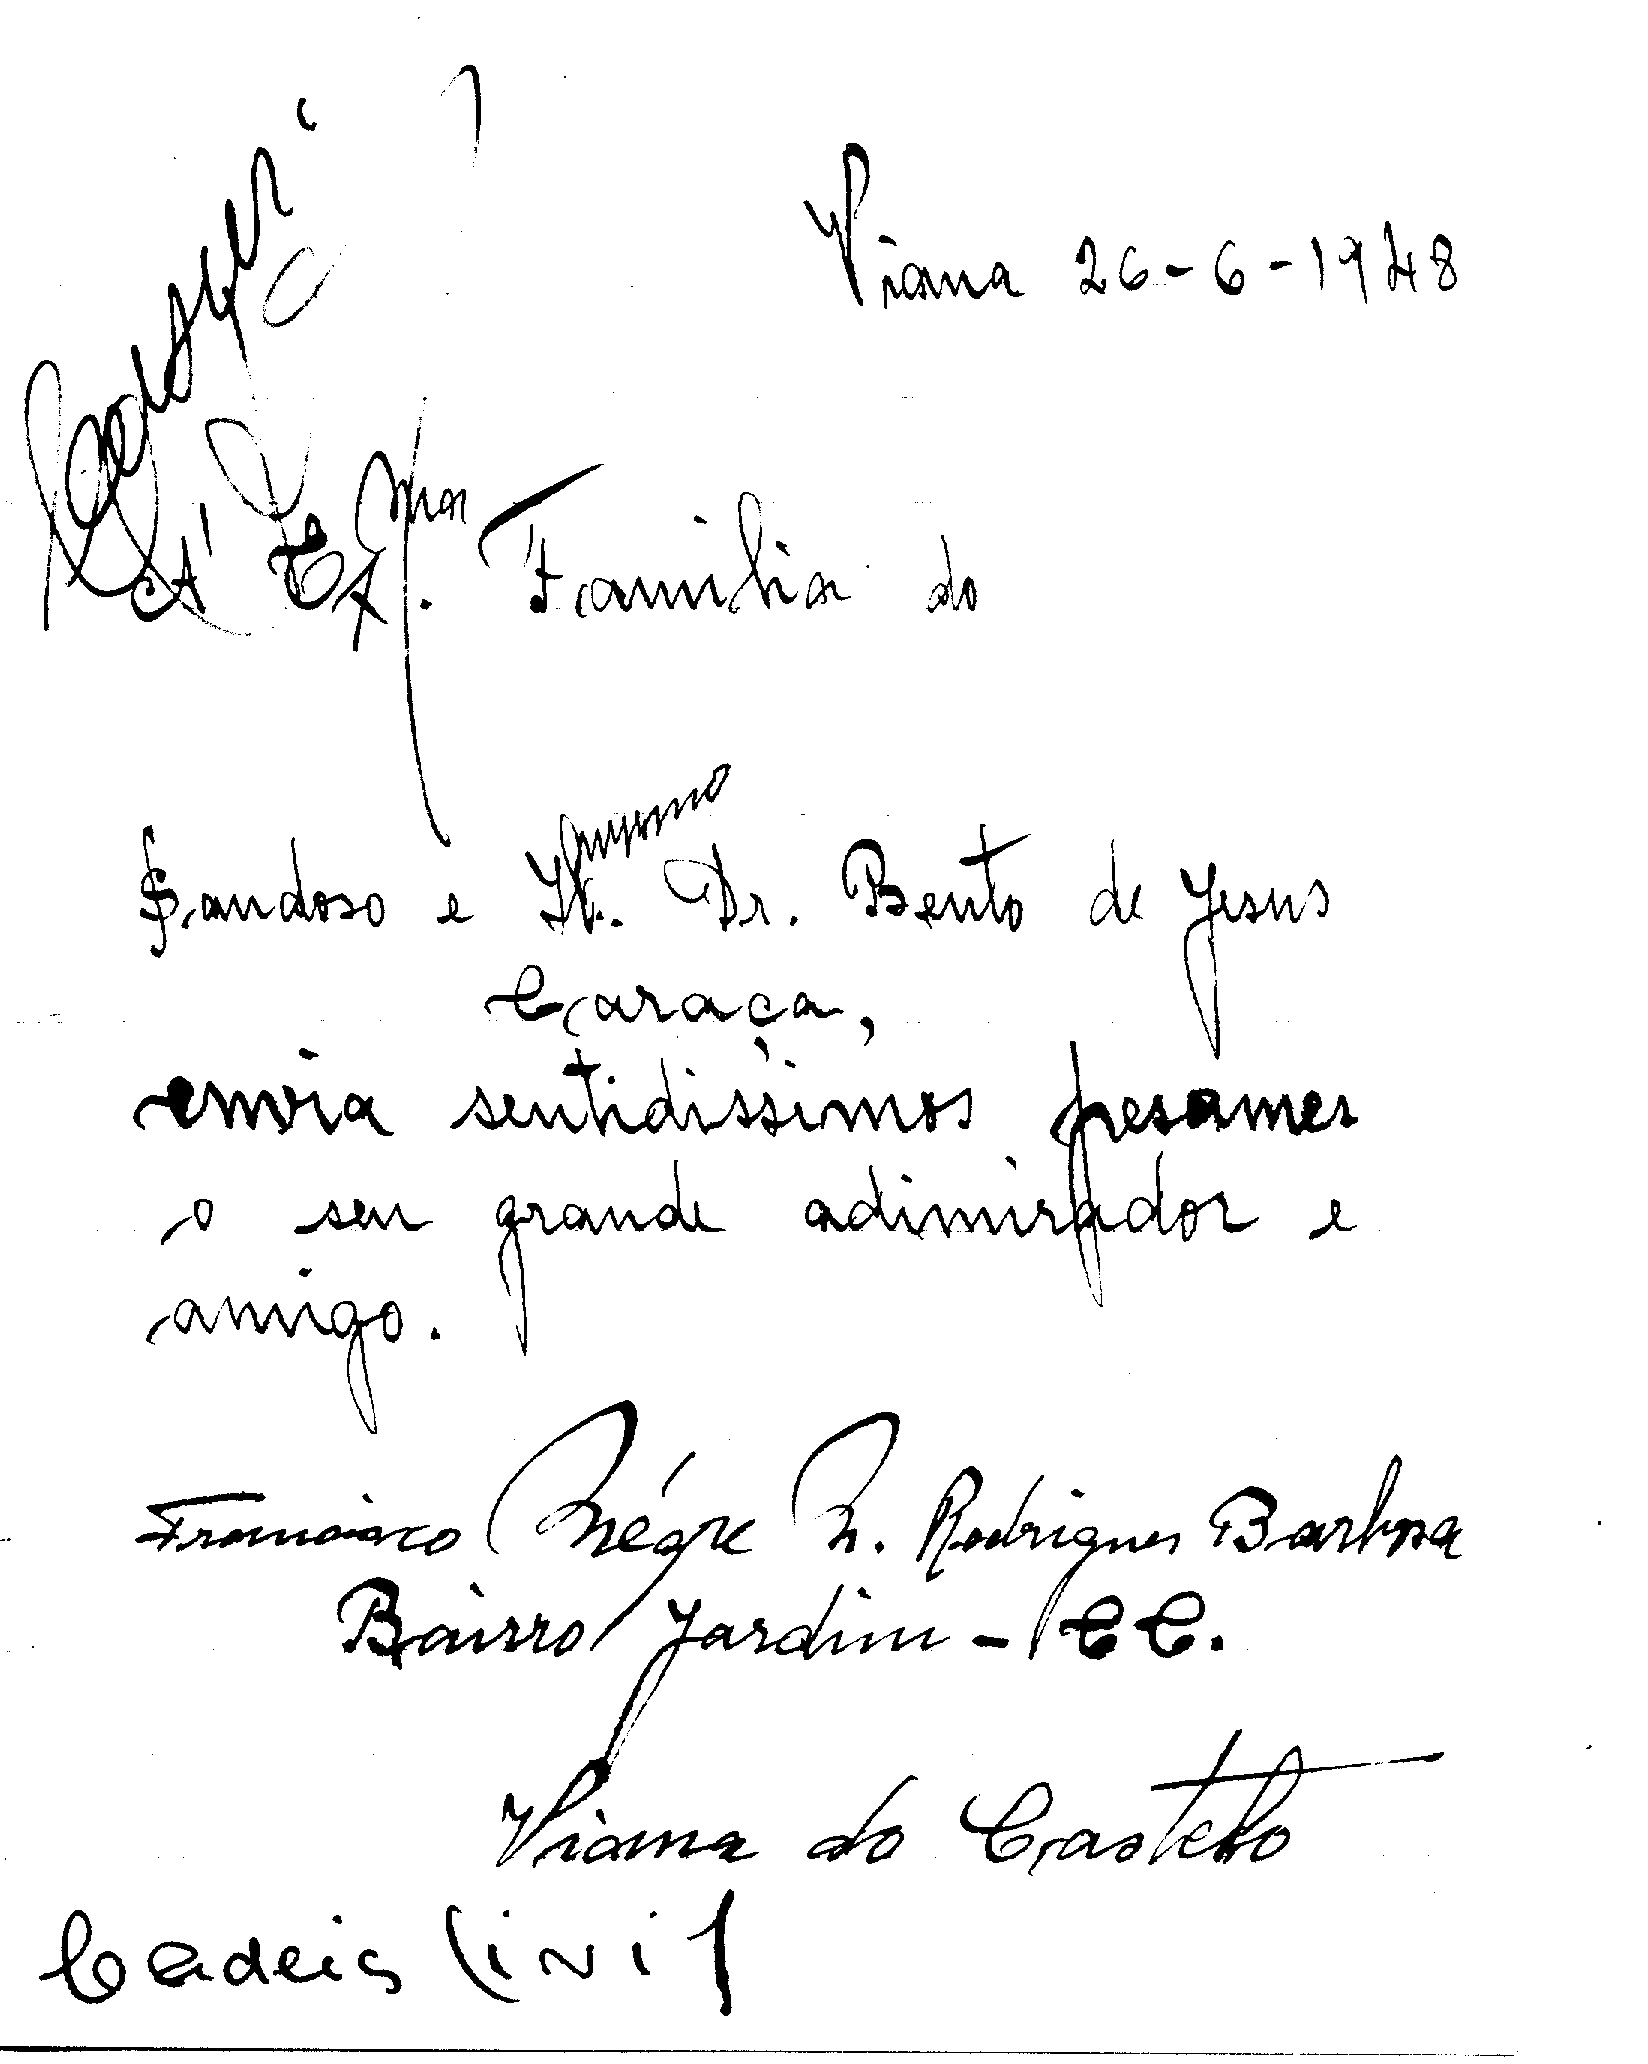 Viana 26-6-1948
Á Exma. Familia do
Saudoso e Dr. Bento de Jesus
Caraça,
envia sentidissimos pesames
o seu grande adimirador e
amigo.
Francisco Négre M. Rodrigues Barbosa
Bairro Jardim - CC.
Viana do Castelo
Cadeia Civil